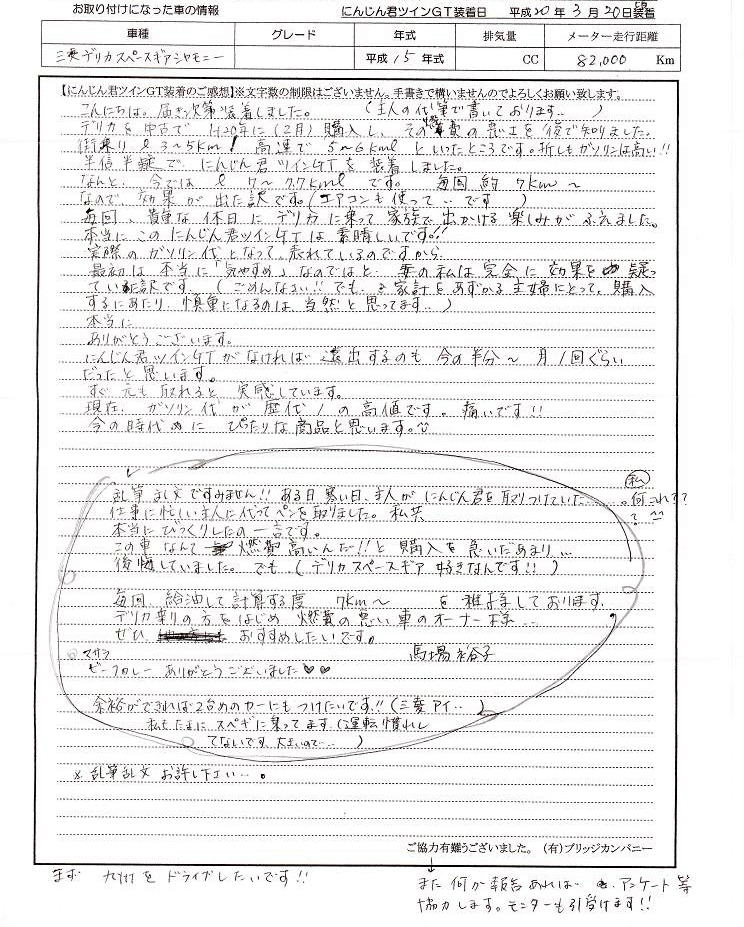 お取り付けになった車の情報
にんじん君ツインGT装着日 平成20年3月20日装着
車種 グレード 年式 排気量 メーター走行距離
三菱デリカスペースギアシャモニー 平成15年式 CC 82,000 Km
【にんじん君ツインGT装着のご感想】※文字数の制限はございません。手書きで構いませんのでよろしくお願い致します。
こんにちは。届き次第装着しました。 (主人の代筆で書いております‥)
デリカを中古で、H20年に(2月)購入し、その燃費の悪さを後で知りました。
街乗り l 3~5Km! 高速で 5~6kml といったところです。折しもガソリンは高い!!
半信半疑で、にんじん君ツインGTを装着しました。
なんと、今では l 7~7.7kmlです。 毎回 約7Km~
なので、効果が出た訳です。(エアコンも使って‥です)
毎回、貴重な休日にデリカに乗って家族で出かける楽しみがふえました。
本当にこのにんじん君ツインGTは素晴しいです!!
実際のガソリン代となって、表れているのですから
最初は本当に「気やすめ」なのではと、妻の私は完全に効果を疑っ
ていた訳です。(ごめんなさい!!でも、家計をあずかる主婦にとって、購入
するにあたり、慎重になるのは当然と思ってます‥)
本当に
ありがとうございます。
にんじん君ツインGTがなければ遠出するのも今の半分~月1回ぐらい
だったと思います。
すぐ元も取れると実感しています。
現在、ガソリン代が歴代1の高値です。痛いです!!
今の時代にぴったりな商品と思います。
乱筆乱文ですみません!!ある日寒い日、主人がにんじん君を取りつけていた‥‥。何これ??
私
仕事に忙しい主人に代ってペンを取りました。私共
本当にびっくりしたの一言です。
この車なんて燃費高いんだ!!と購入を急いだあまり‥
後悔していました。でも(デリカスペースギア好きなんです!!)
毎回、給油して計算する度 7Km~ を維持しております。
デリカ乗りの方をはじめ燃費の悪い車のオーナー様‥
ぜひ おすすめしたいです。
馬場
マサラ
ビーフカレーありがとうございました♡♡
余裕ができれば2台めのカーにもつけたいです!!(三菱アイ‥)
私もたまにスペギに乗ってます(運転慣れし
てないです、大きいので‥)
※乱筆乱文お許し下さい‥。
ご協力有難うございました。 (有)ブリッジカンパニー
まず 九州をドライブしたいです!!
また何か報告あれば アンケート等
協力します。モニターも引受けます!!